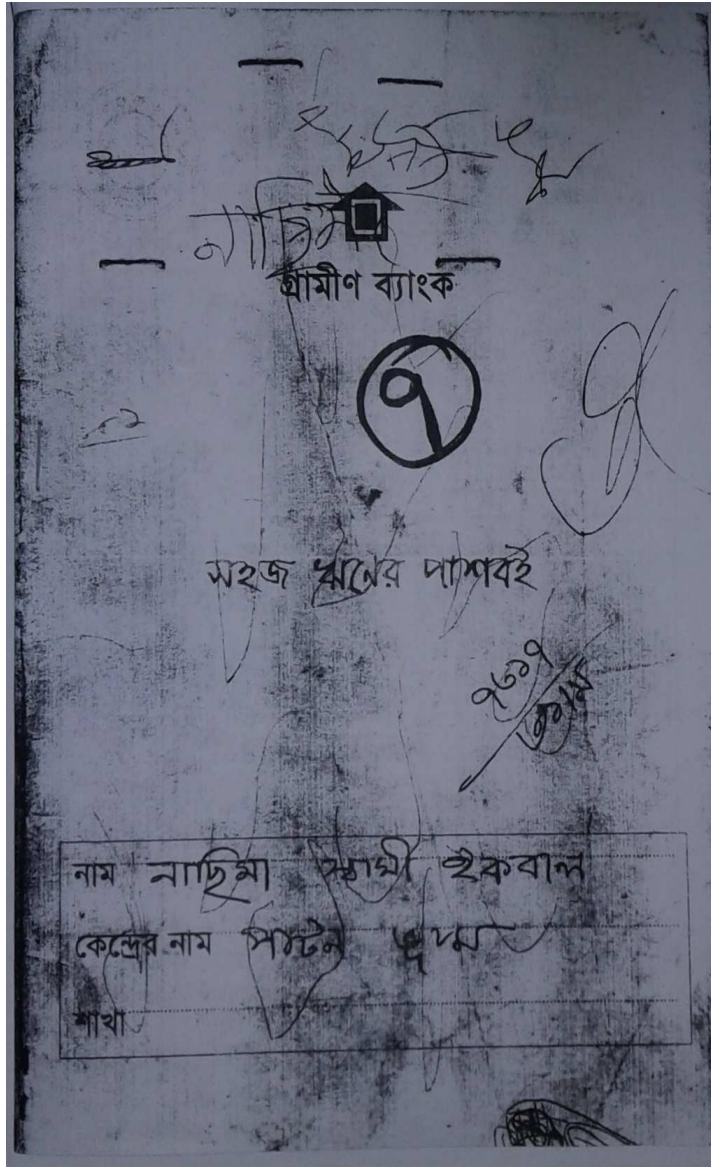 নাছিমা
গ্রামীণ ব্যাংক
৭
সহজ ঋনের পাশবই
৭৬৯৭
নাম নাছিমা স্বামী ইকবাল
কেন্দ্রের নাম পাটন
শাখা